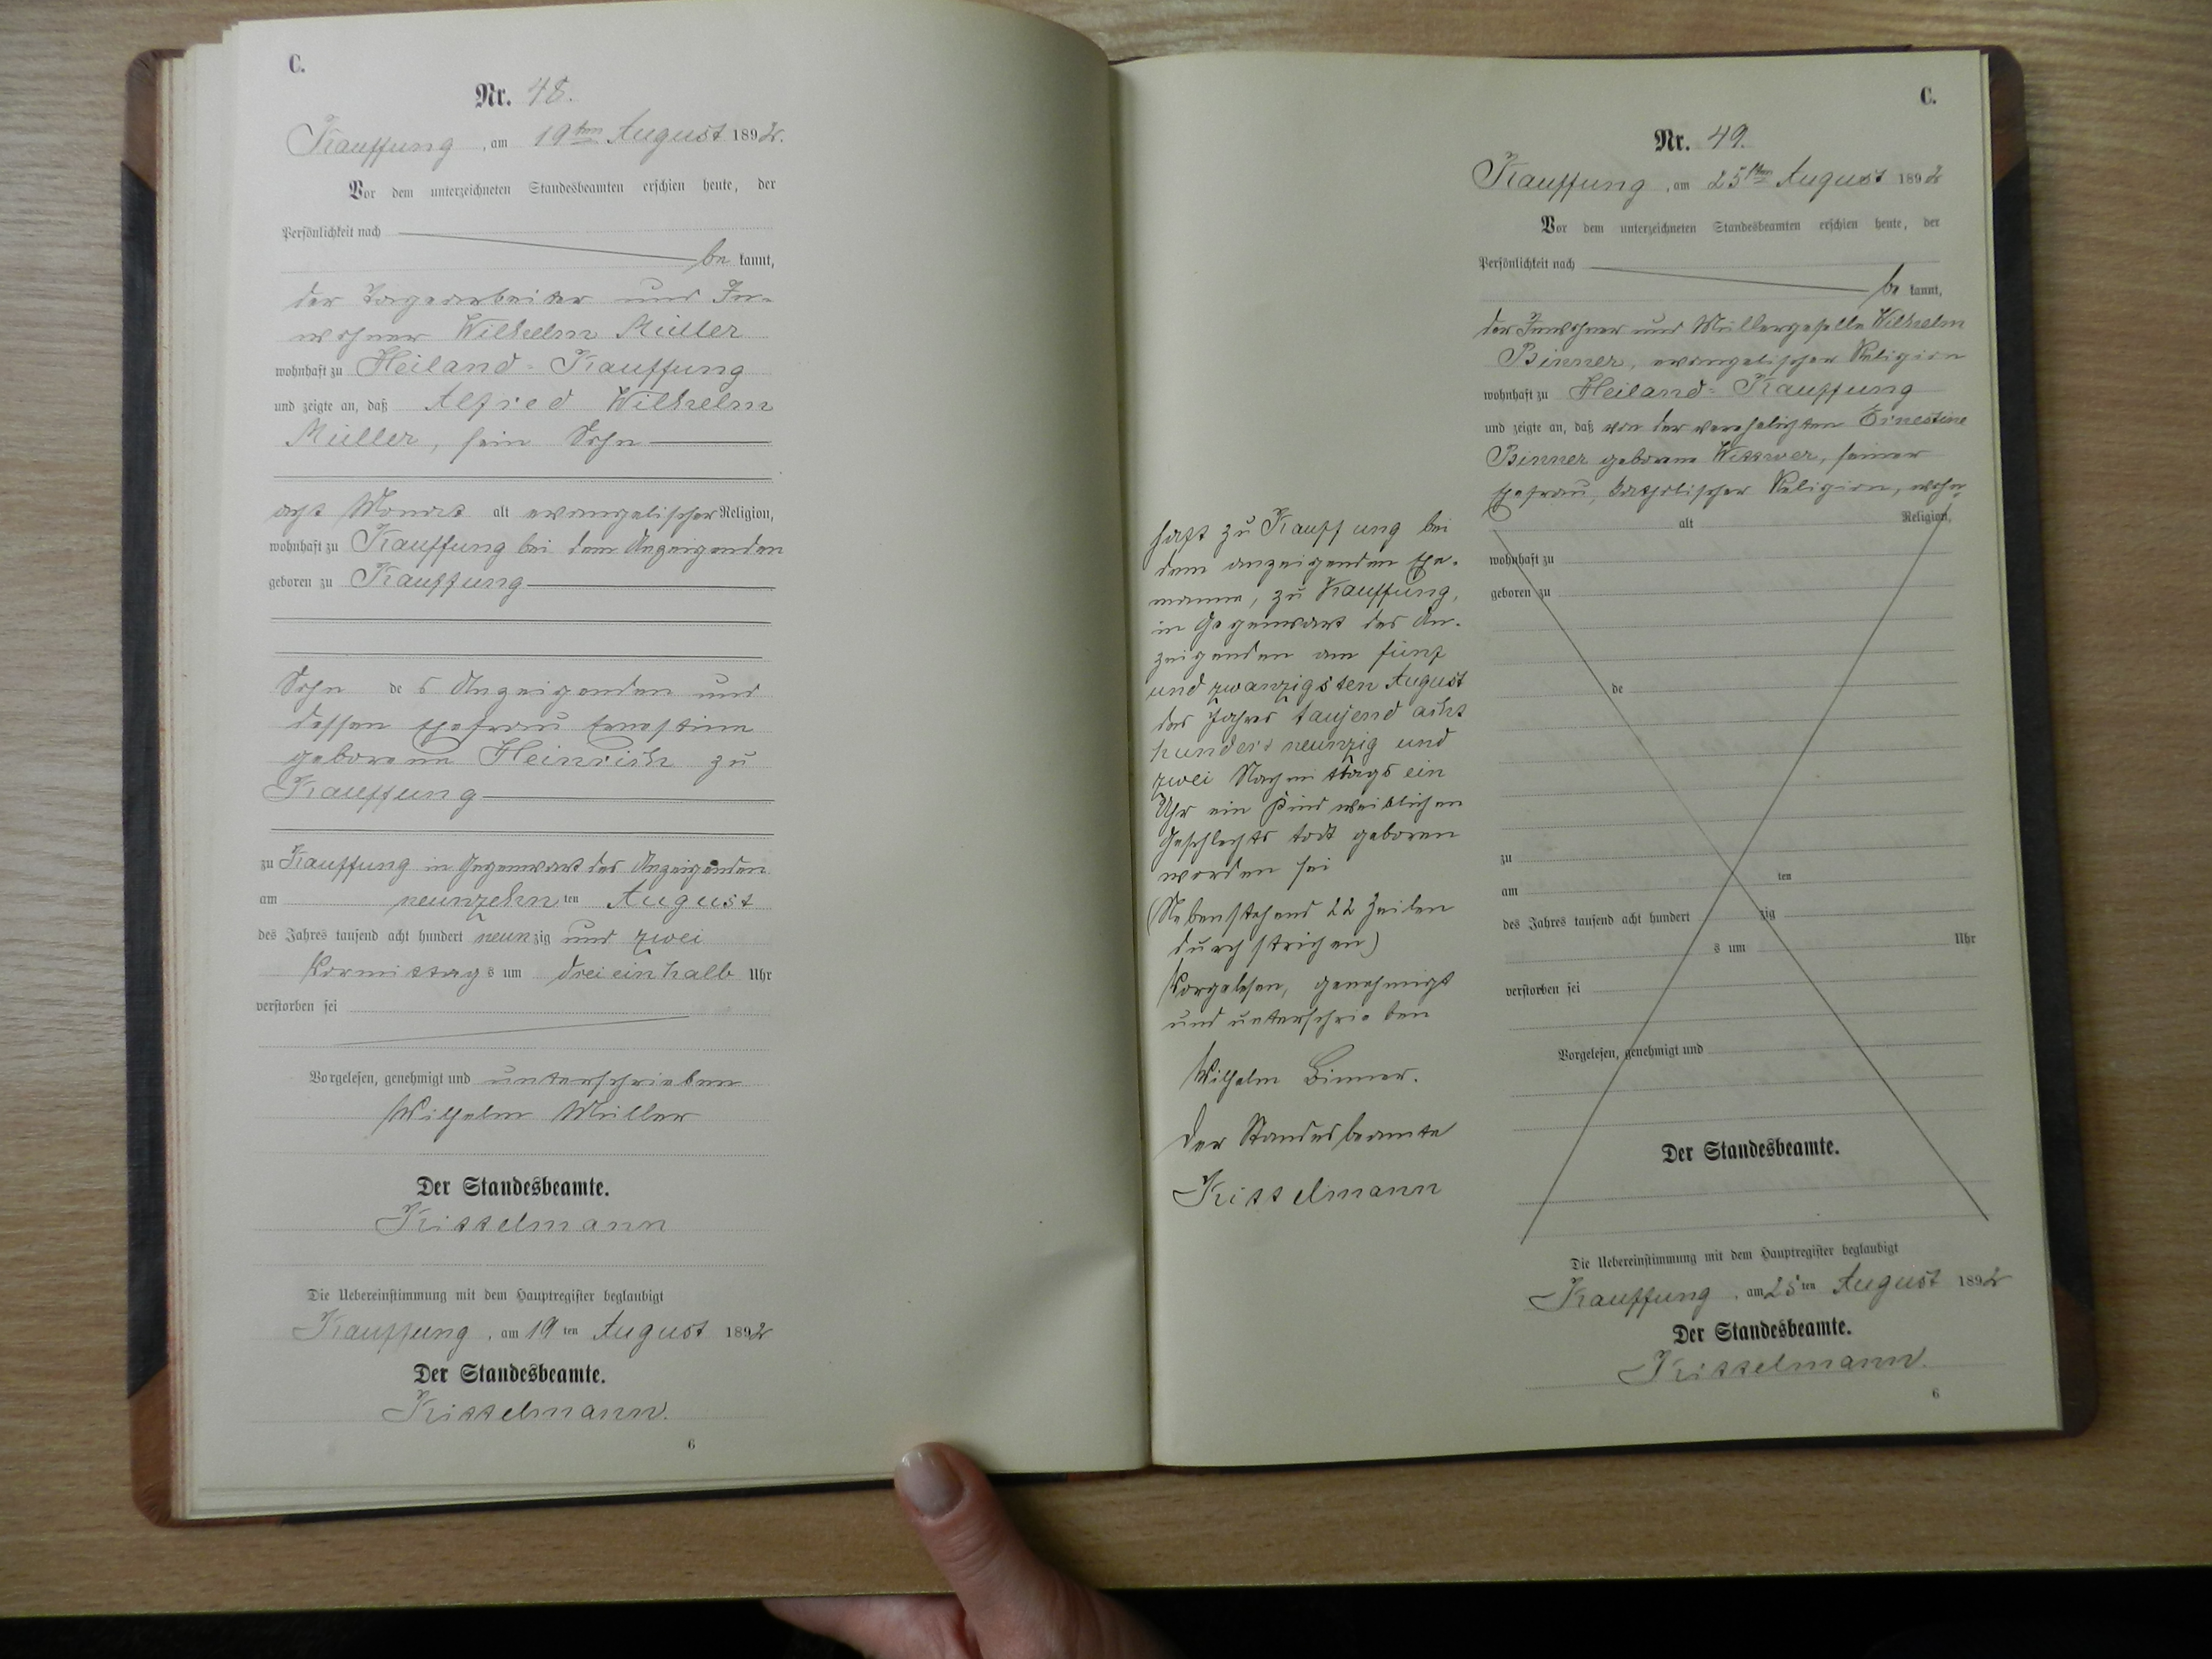 C.
Nr. 48.
Kauffung, am 19ten August 1892.
Vor dem unterzeichneten Standesbeamten erschien heute, der
Persönlichkeit nach
be kannt,
der Tagearbeiter und In-
wohner Wilhelm Müller
wohnhaft zu Heiland-Kauffung
und zeigte an, daß Alfred Wilhelm
Müller, sein Sohn
acht Monat alt evangelischer Religion,
wohnhaft zu Kauffung bei dem Anzeigenden
geboren zu Kauffung
Sohn des Anzeigenden und
dessen Ehefrau Ernestine
geborene Heinrich zu
Kauffung
zu Kauffung in Gegenwart des Anzeigenden
am neunzehn ten August
des Jahres tausend acht hundert neunzig und zwei
Vormittags um dreieinhalb Uhr
verstorben sei
Vorgelesen, genehmigt und unterschrieben
Wilhelm Müller
Der Standesbeamte.
Kisselmann
Die Uebereinstimmung mit dem Hauptregister beglaubigt
Kauffung, am 19 ten August 1892
Der Standesbeamte.
Kisselmann.
6
C.
Nr. 49.
Kauffung, am 25ten August 1892
Vor dem unterzeichneten Standesbeamten erschien heute, der
Persönlichkeit nach
be kannt,
der Inwohner und Müllergeselle Wilhelm
Binner, evangelischer Religion
wohnhaft zu Heiland-Kauffung
und zeigte an, daß von der verehelichten Ernestine
Binner geborene Wittwer, seiner
Ehefrau, katholischer Religion, wohn-
haft zu Kauffung bei
dem anzeigenden Ehe-
manne, zu Kauffung,
in Gegenwart des An-
zeigenden am fünf
und zwanzigsten August
des Jahres tausend acht
hundert neunzig und
zwei Nachmittags ein
Uhr ein Kind weiblichen
Geschlechts todt geboren
worden sei
(Nebenstehend 22 Zeilen
durchstrichen)
Vorgelesen, genehmigt
und unterschrieben
Wilhelm Binner.
Der Standesbeamte
Kisselmann
alt Religion,
wohnhaft zu
geboren zu
de
zu
am ten
des Jahres tausend acht hundert zig
s um Uhr
verstorben sei
Vorgelesen, genehmigt und
Der Standesbeamte.
Die Uebereinstimmung mit dem Hauptregister beglaubigt
Kauffung, am 25 ten August 1892
Der Standesbeamte.
Kisselmann.
6